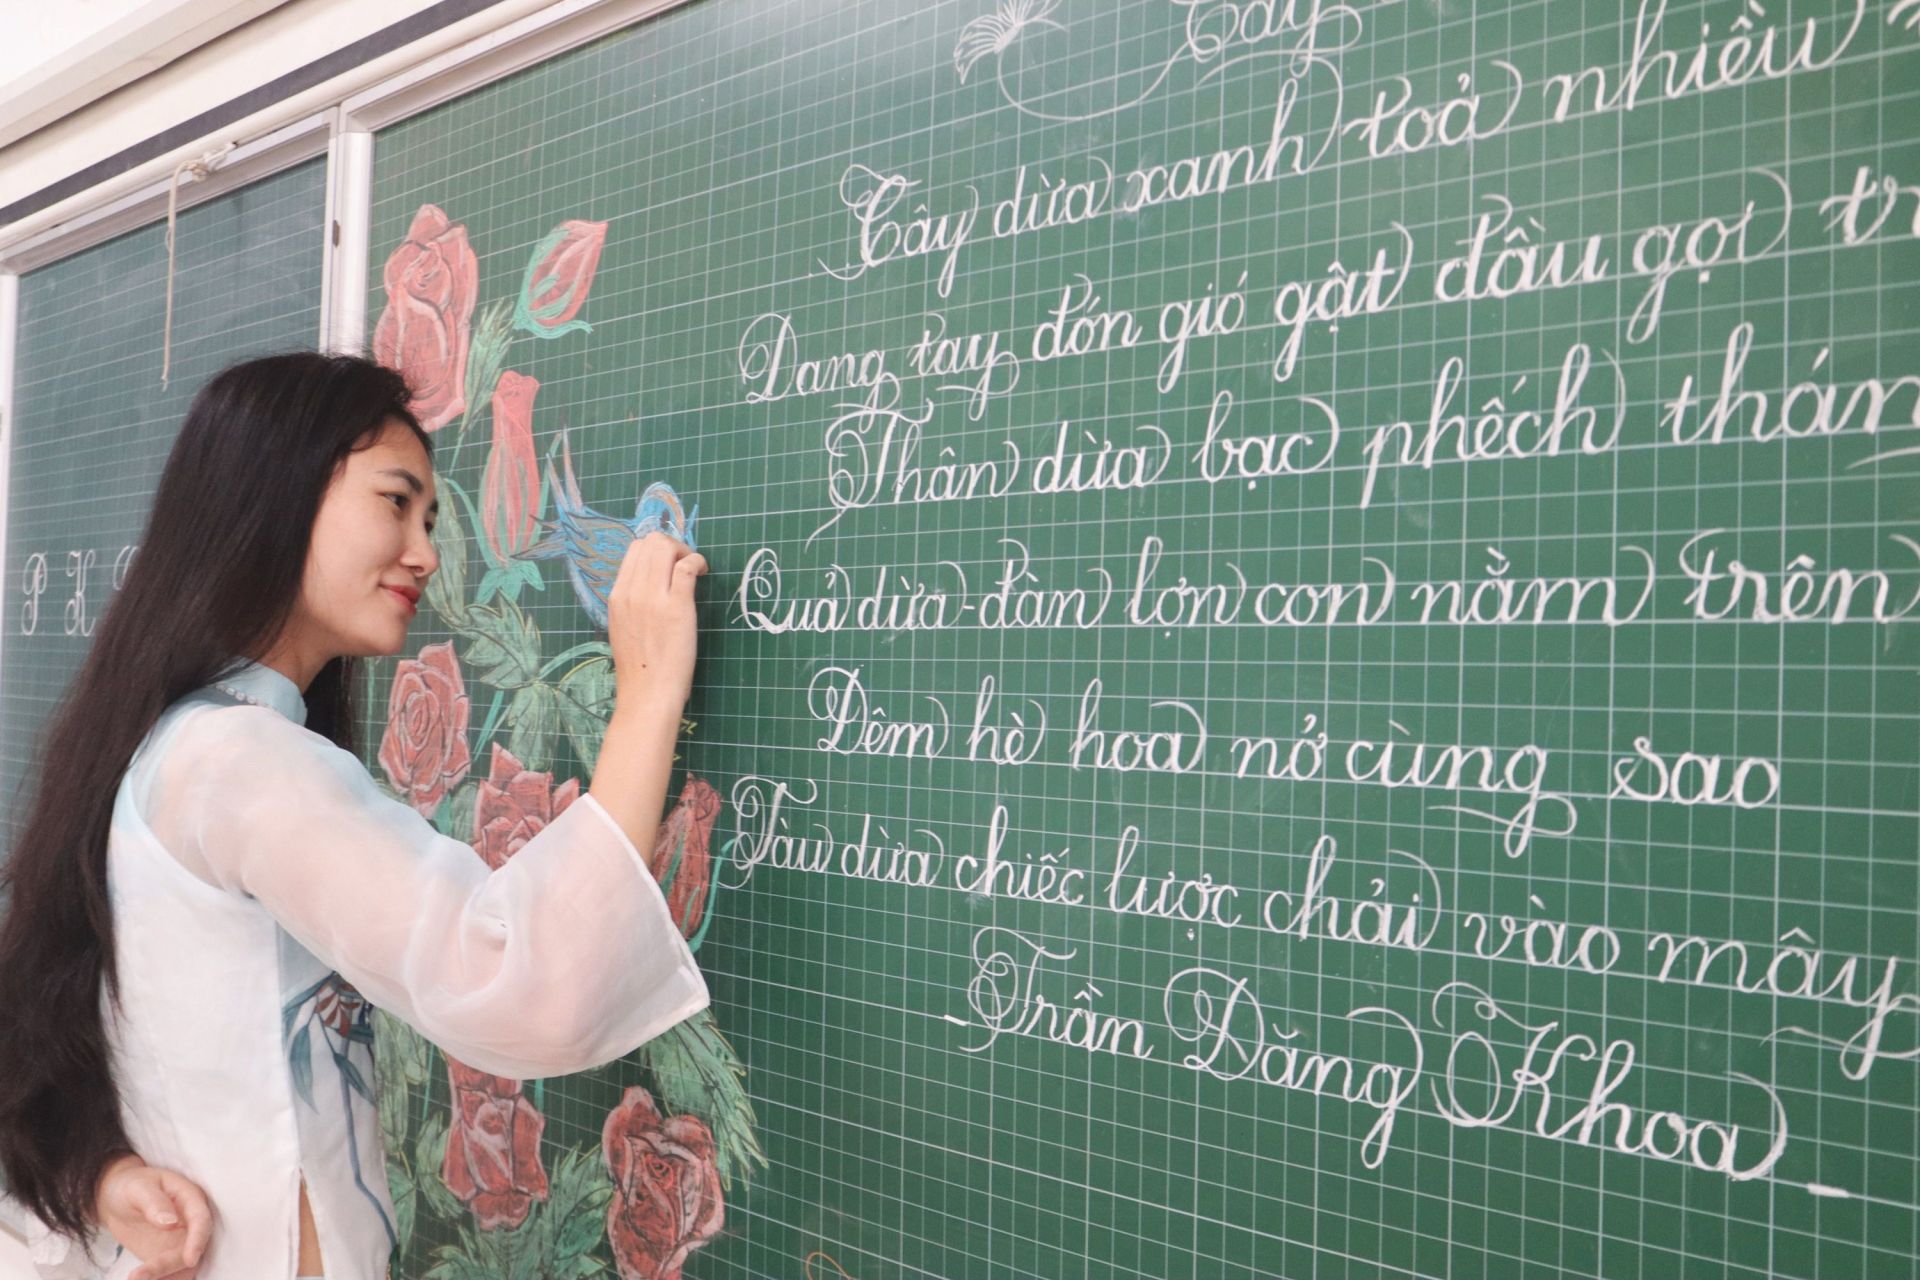 Cây
Cây dừa xanh toả nhiều
Dang tay đón gió gật đầu gọi tr
Thân dừa bạc phếch thán
Quả dừa - đàn lợn con nằm trên
Đêm hè hoa nở cùng sao
Tàu dừa chiếc lược chải vào mây
Trần Đăng Khoa
P K